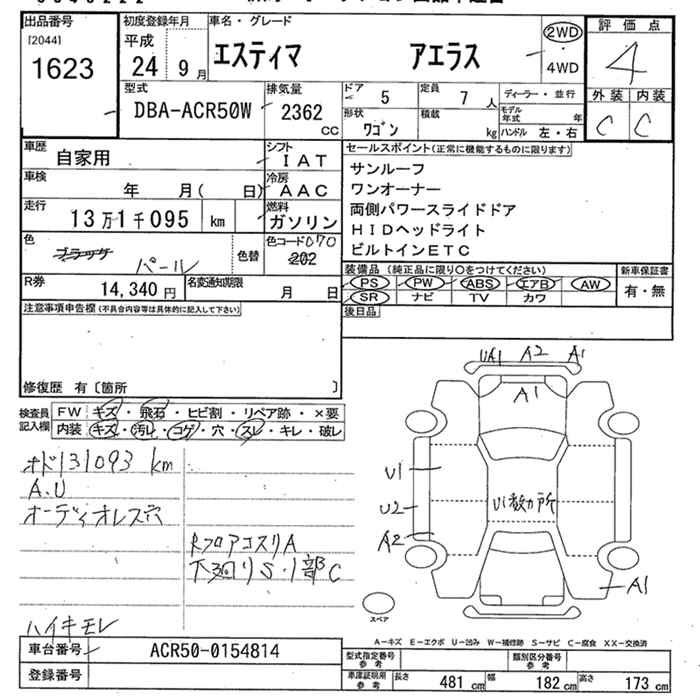 出品番号
[2044]
1623
初度登録年月
平成
24年 9月
車名・グレード
エスティマ アエラス
2WD
・
4WD
評価点
4
外装 内装
C C
型式
DBA-ACR50W
排気量
2362 cc
ドア 5
定員 7 人
ディーラー・並行
形状 ワゴン
積載 kg
モデル年式 年
ハンドル 左・右
車歴
自家用
シフト
IAT
車検
年 月( 日)
冷房
AAC
走行
13万1千095 km
燃料
ガソリン
色
ブラック パール
色替
色コード070
202
R券
14,340 円
名変通知期限
月 日
セールスポイント(正常に機能するものに限ります)
サンルーフ
ワンオーナー
両側パワースライドドア
HIDヘッドライト
ビルトインETC
装備品 (純正品に限り○をつけてください)
PS PW ABS エアB AW
SR ナビ TV カワ
新車保証書
有・無
後日品
注意事項申告欄(不具合内容等は具体的に記入して下さい)
修復歴 有〔箇所 〕
検査員記入欄
FW キズ・飛石・ヒビ割・リペア跡・×要
内装 キズ・汚レ・コゲ・穴・スレ・キレ・破レ
オド131093 km
A.U
オーディオレス穴
RフロアコスリA
下廻りS・1部C
ハイキモレ
UA1 A2 A1
A1
U1
U2
A2
U1数カ所
A1
スペア
A-キズ E-エクボ U-凹み W-補修跡 S-サビ C-腐食 XX-交換済
車台番号
ACR50-0154814
登録番号
型式指定番号 参考
類別区分番号 参考
車庫証明用 参考
長さ 481 cm 幅 182 cm 高さ 173 cm